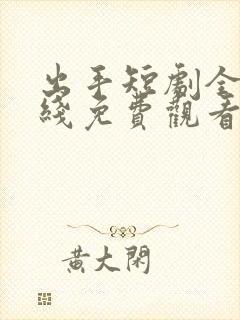 出手短劇全
綫免費觀看
黃大閑